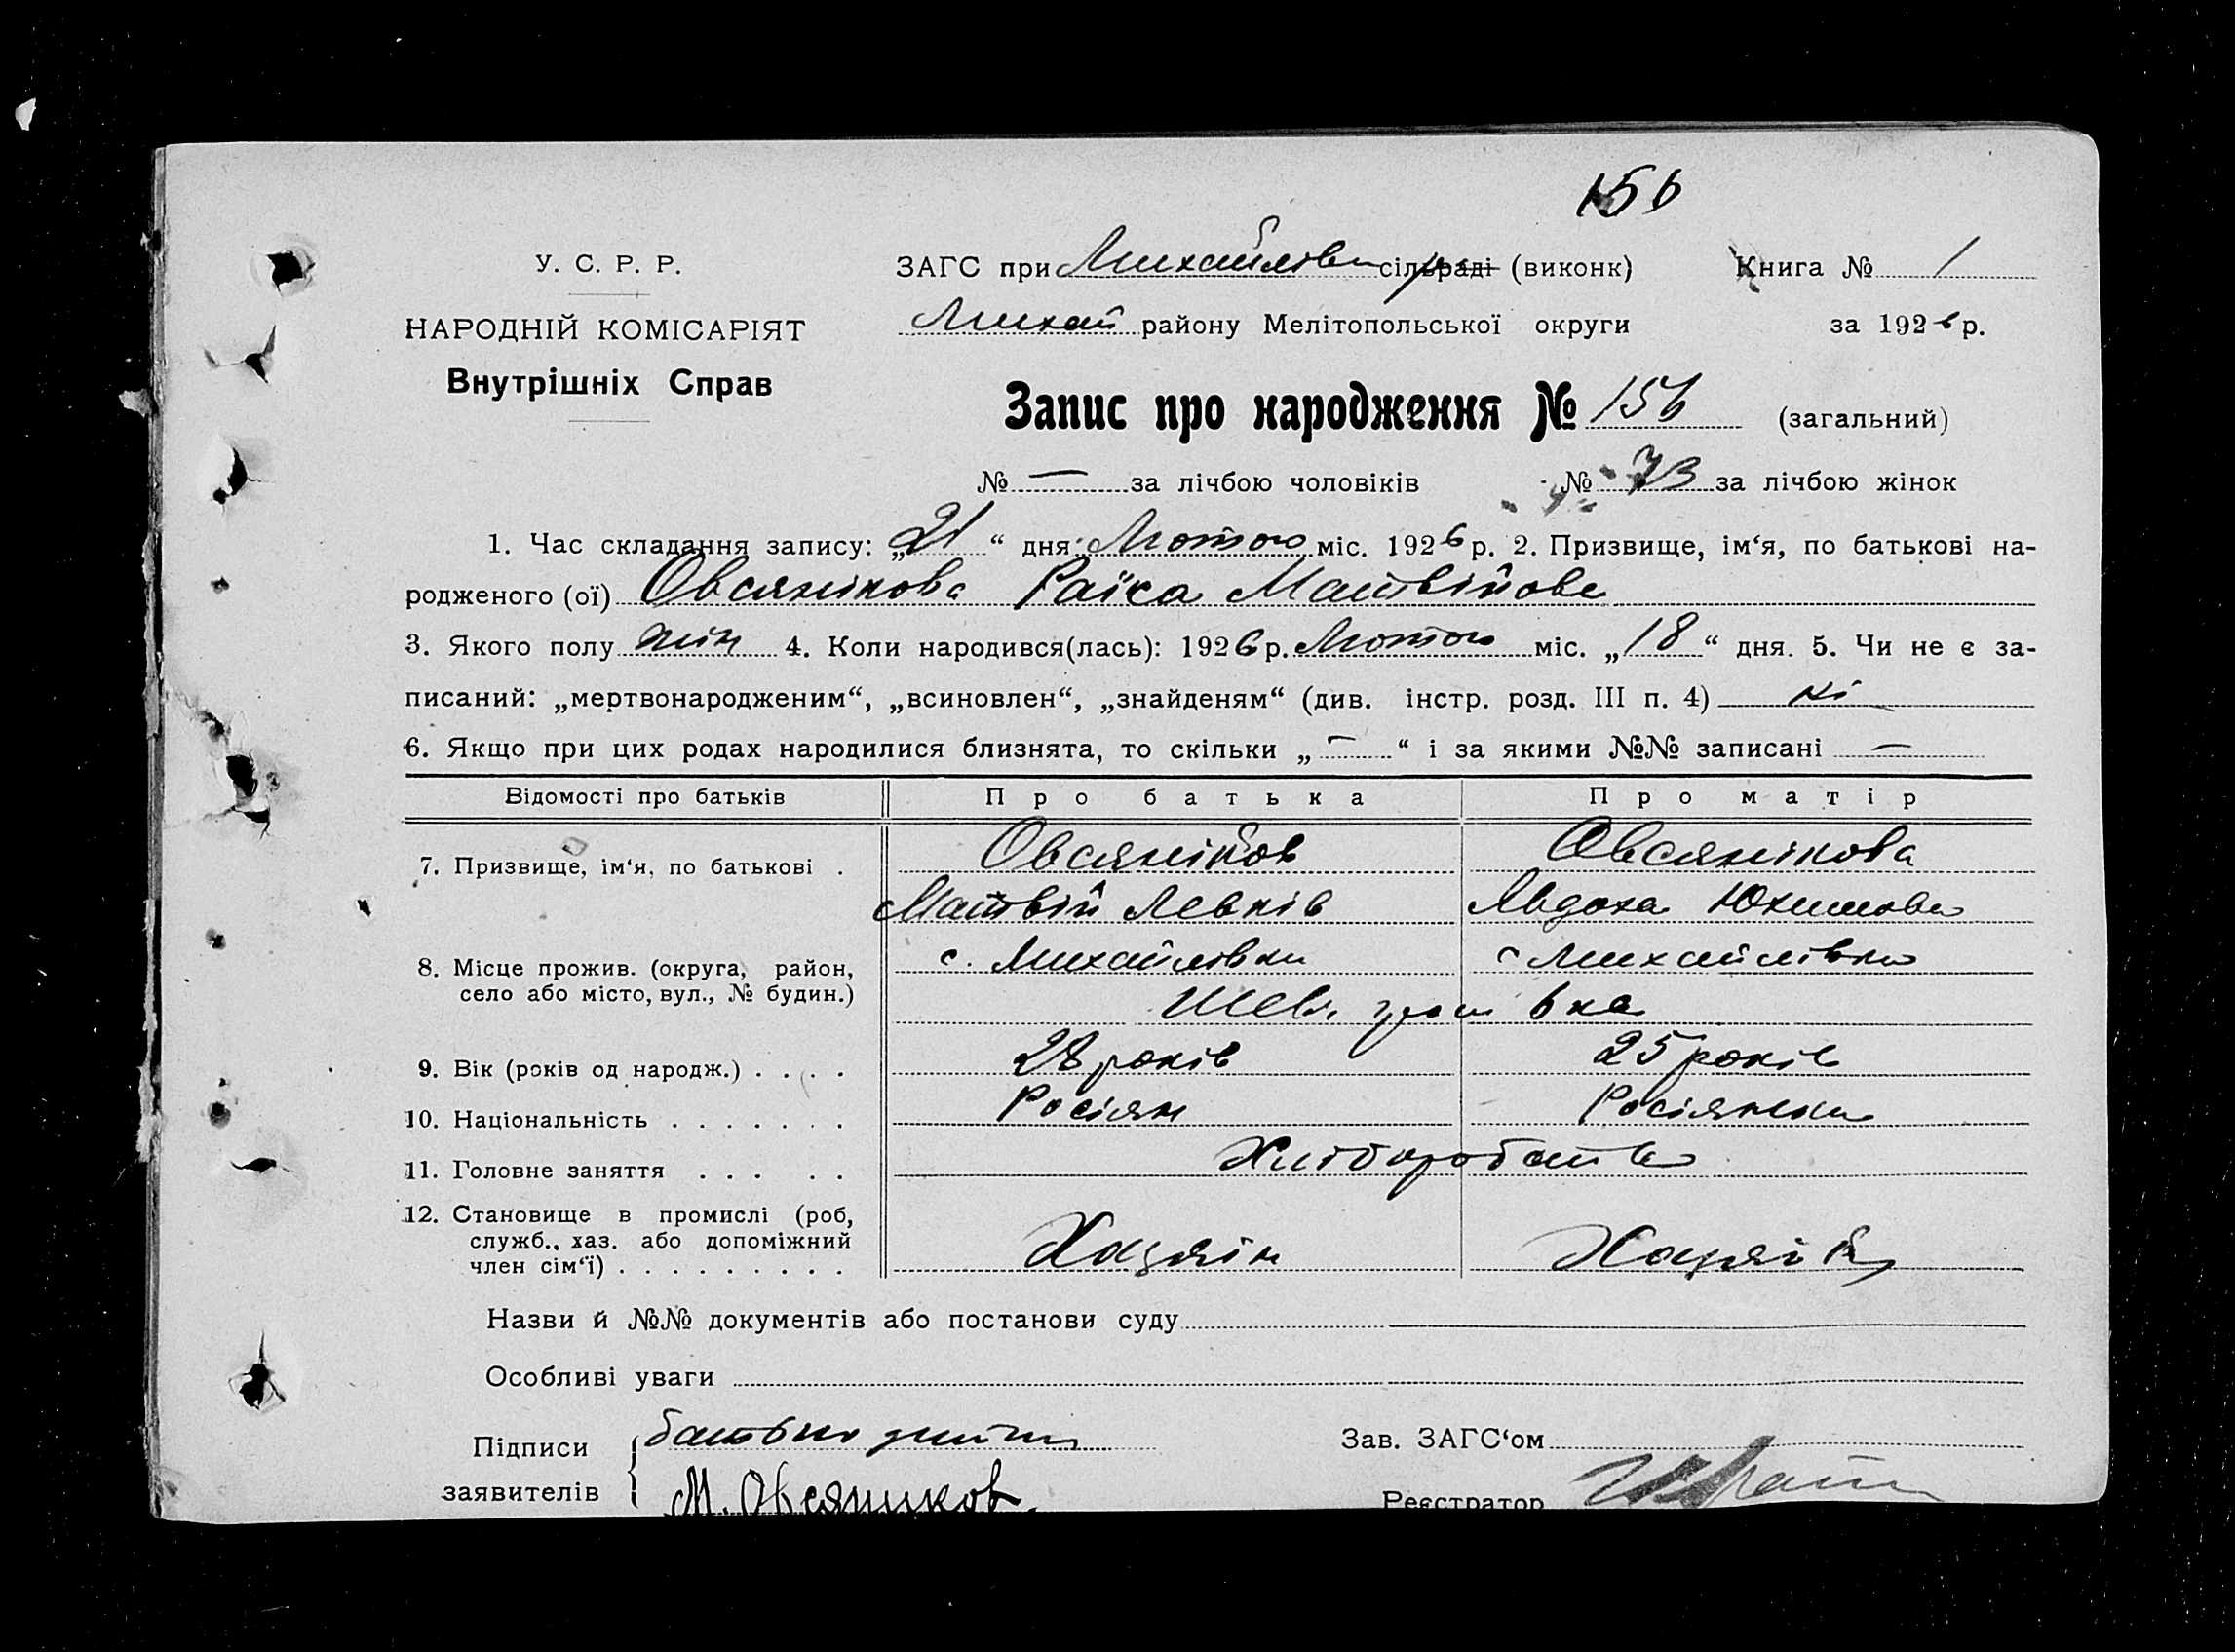 156
У. С. Р. Р.
ЗАГС при Михайлівськ сільраді (виконк)
Книга № 1
НАРОДНІЙ КОМІСАРІЯТ
Михай району Мелітопольської округи
за 1926 р.
Внутрішніх Справ
Запис про народження № 156 (загальний)
№ — за лічбою чоловіків № 73 за лічбою жінок
1. Час складання запису: „21“ дня Лютого міс. 1926 р. 2. Призвище, ім‘я, по батькові на-
родженого (ої) Овсянікова Раїса Матвійова
3. Якого полу жін 4. Коли народився(лась): 1926 р. Лютого міс. „18“ дня. 5. Чи не є за-
писаний: „мертвонародженим“, „всиновлен“, „знайденям“ (див. інстр. розд. III п. 4) ні
6. Якщо при цих родах народилися близнята, то скільки „—“ і за якими №№ записані —
Відомості про батьків Про батька Про матір
7. Призвище, ім‘я, по батькові . Овсяніков Овсянікова
Матвій Левків Явдоха Юхимова
8. Місце прожив. (округа, район, с. Михайлівка с Михайлівка
село або місто, вул., № будин.) Шевч
9. Вік (років од народж.) . . . . 28 років 25 років
10. Національність . . . . . . . Росіян Росіянка
11. Головне заняття . . . . . Хліборобств
12. Становище в промислі (роб,
служб., хаз. або допоміжний Хазяїн Хазяйк
член сім‘ї) . . . . . . . . .
Назви й №№ документів або постанови суду
Особливі уваги
Підписи батько дитини
Зав. ЗАГС‘ом
заявителів М. Овсяников.
Реєстратор